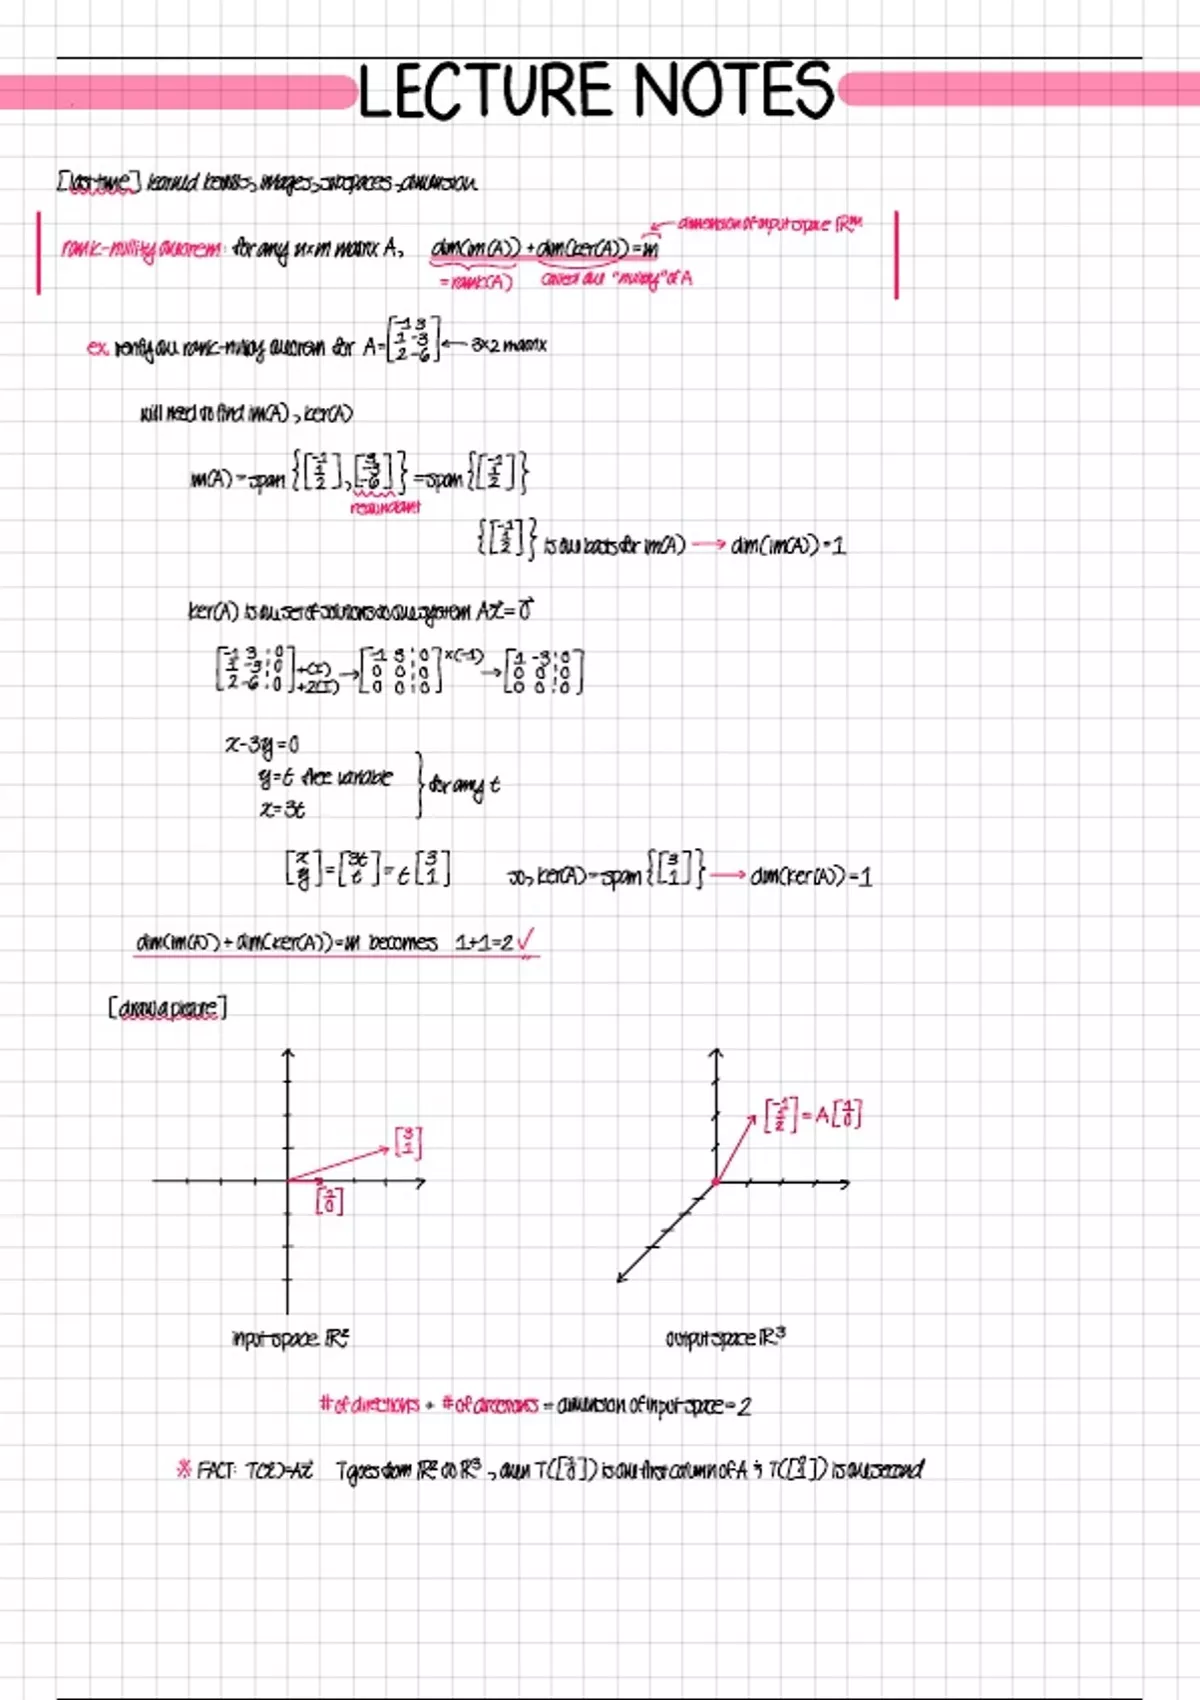 LECTURE NOTES
[last time] learned kernels, images, subspaces, dimension
dimension of input space ℝᵐ
rank-nullity theorem: for any n×m matrix A, dim(im(A)) + dim(ker(A)) = m
= rank(A) called the "nullity" of A
ex. verify the rank-nullity theorem for A = [-1 3; 1 -3; 2 -6] ← 3×2 matrix
will need to find im(A), ker(A)
im(A) = span {[-1; 1; 2], [3; -3; -6]} = span {[-1; 1; 2]}
redundant
{[-1; 1; 2]} is our basis for im(A) → dim(im(A)) = 1
ker(A) is the set of solutions to the system Ax⃗ = 0⃗
[-1 3 | 0; 1 -3 | 0; 2 -6 | 0] +(I) +2(I) → [-1 3 | 0; 0 0 | 0; 0 0 | 0] ×(-1) → [1 -3 | 0; 0 0 | 0; 0 0 | 0]
x-3y=0
y=t free variable } for any t
x=3t
[x; y] = [3t; t] = t [3; 1] so, ker(A) = span {[3; 1]} → dim(ker(A)) = 1
dim(im(A)) + dim(ker(A)) = m becomes 1+1=2 ✓
[draw a picture]
[3; 1]
[1; 0]
[-1; 1; 2] = A[1; 0]
input space ℝ²
output space ℝ³
# of directions + # of directions = dimension of input space = 2
※ FACT: T(x⃗)=Ax⃗ T goes from ℝ² to ℝ³, then T([1; 0]) is the first column of A & T([0; 1]) is the second